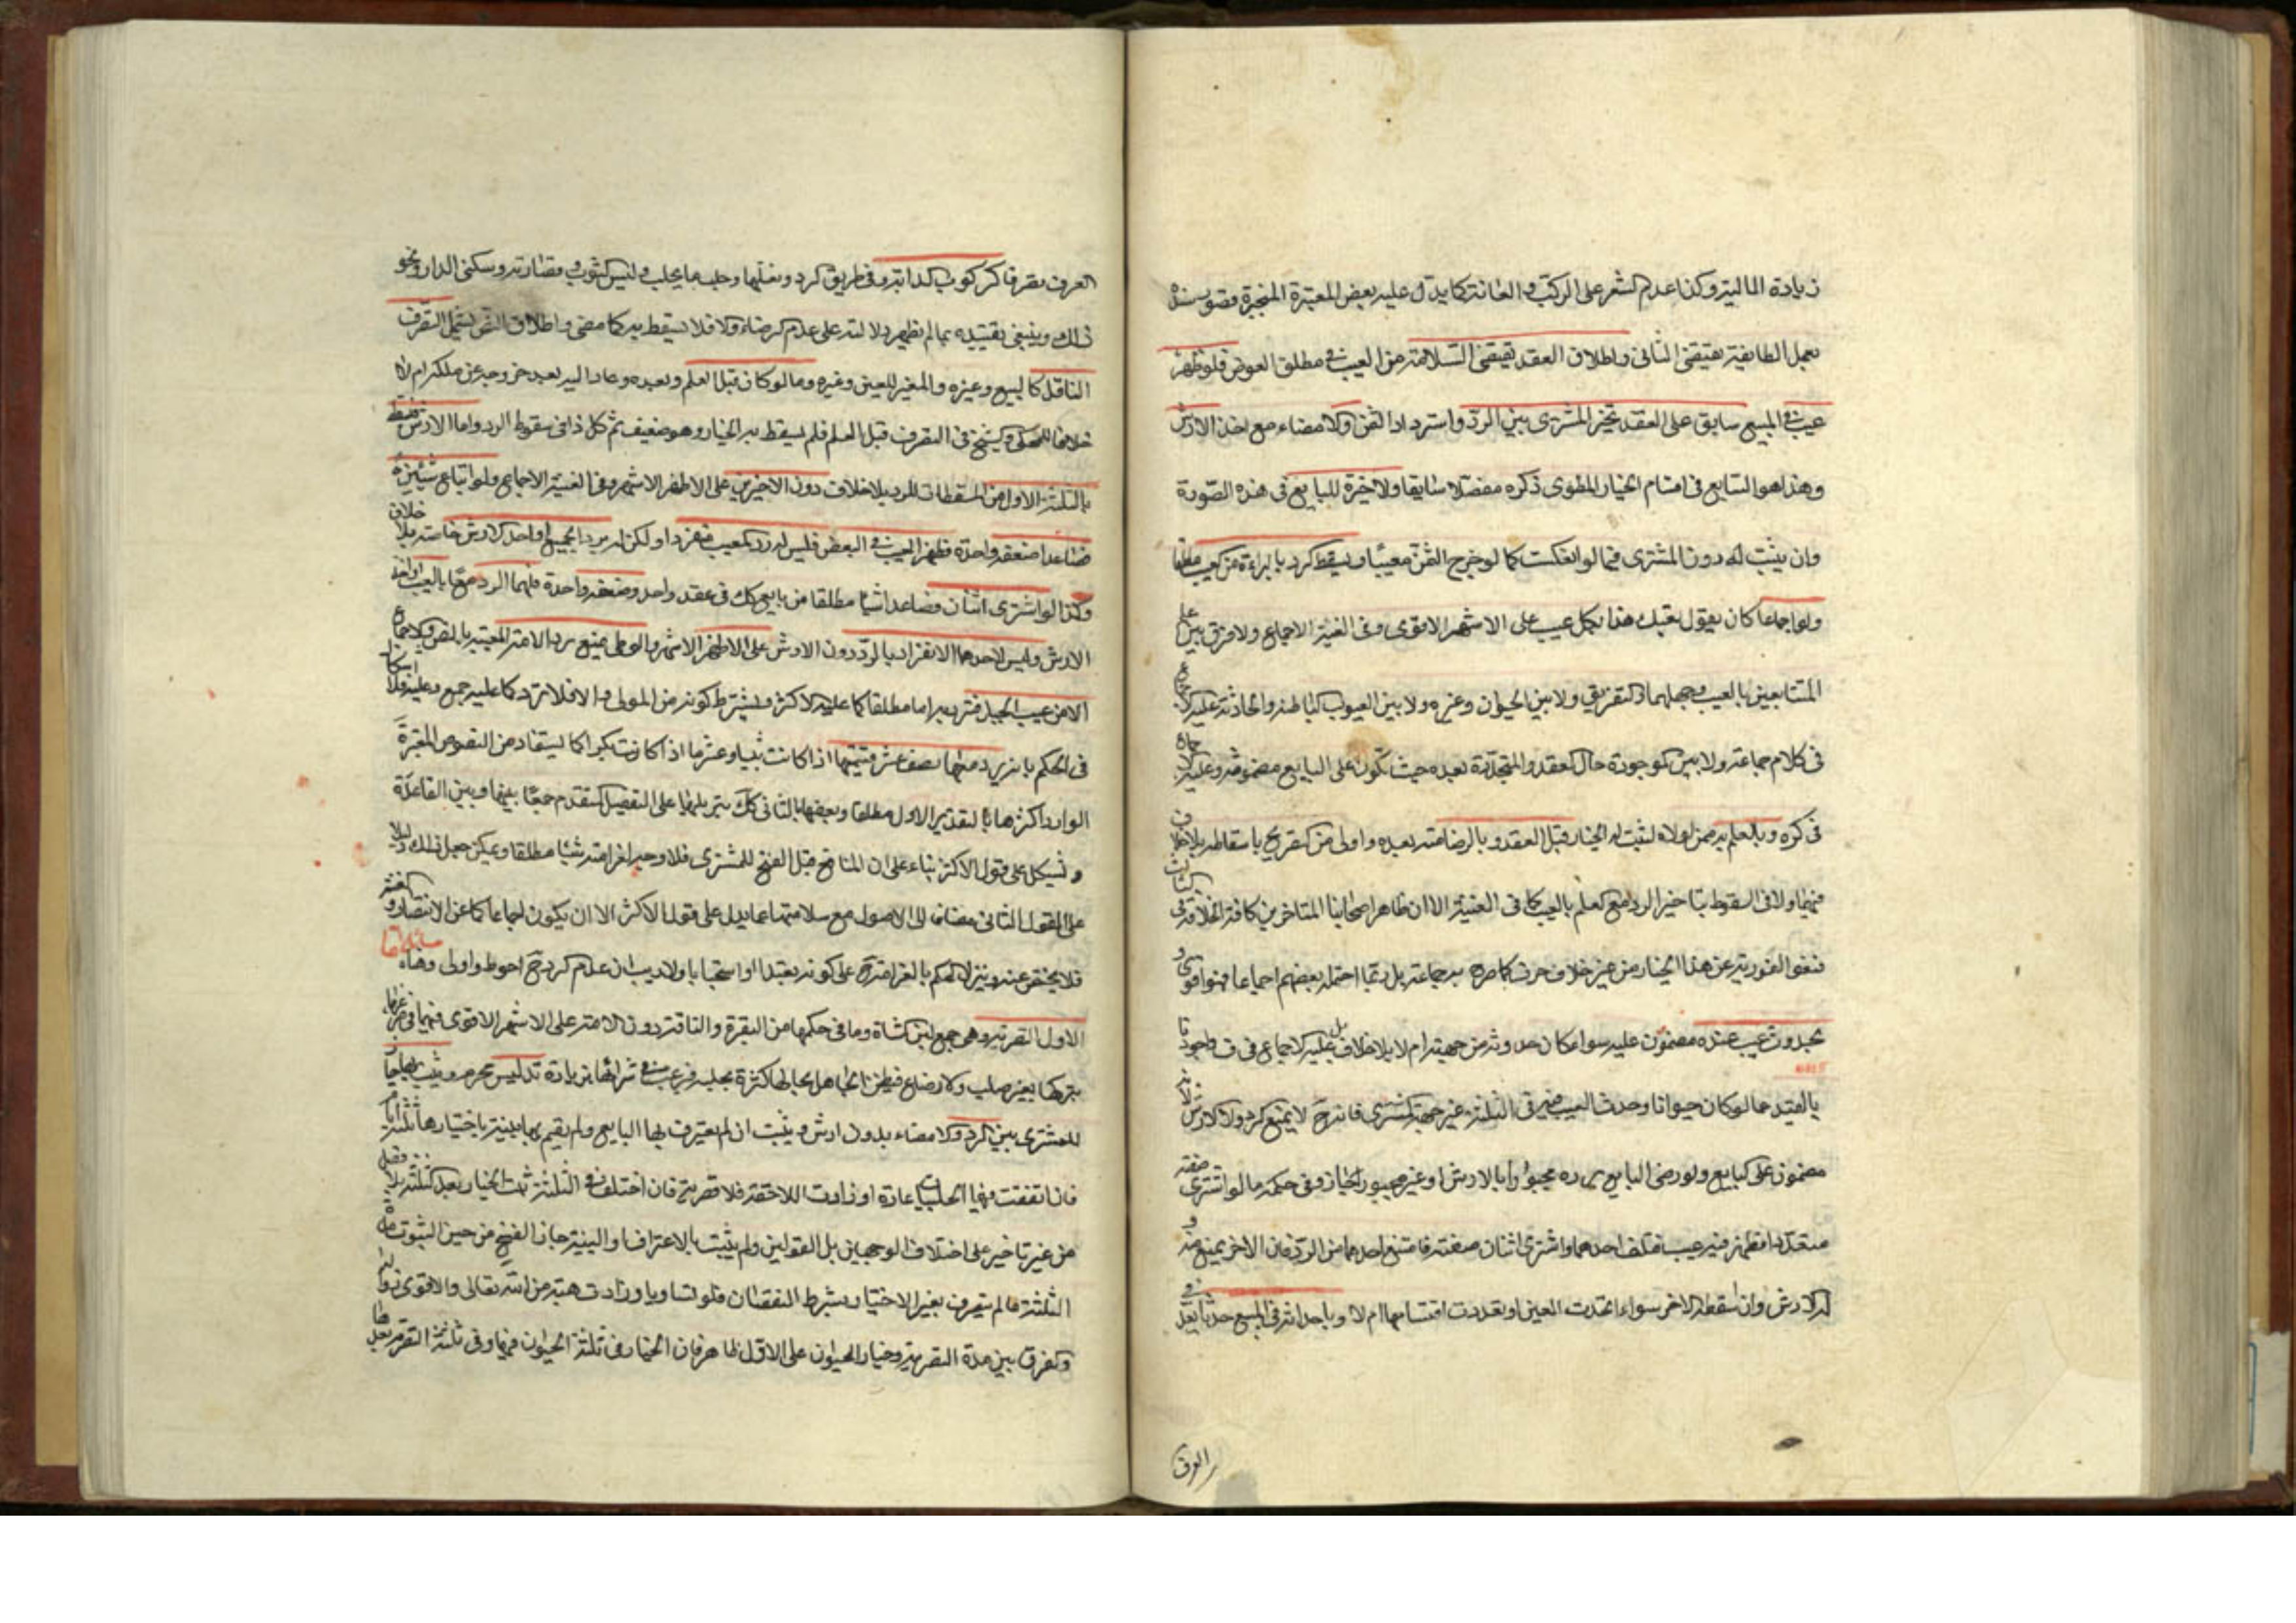 زيادة المالية وكذا عدم الشعر على الركب والعانة كما يدل عليه بعض المعتبرة المنجبرة قصور سنده
بعمل الطايفة يقتضى الثانى واطلاق العقد يقتضى السلامة من العيب فى مطلق العوض فلو ظهر
عيب فى المبيع سابق على العقد تخير المشترى بين الرد واسترداد الثمن والامضاء مع اخذ الارش
وهذا هو السابع فى اقسام الخيار المطوى ذكره مفصلا سابقا ولا خيرة للبايع فى هذه الصورة
وان يثبت له دون المشترى فيما لو انعكست كما لو خرج الثمن معيبا ويسقط الرد بالبراءة من العيب مطلقا
ولو اجماعا كان يقول بعتك هذا بكل عيب على الاشهر الاقوى وفى الغنية الاجماع ولا فرق بين علم
المتبايعين بالعيب وجهلهما والتفريق ولا بين الحيوان وغيره ولا بين العيوب الباطنة والحادثة عليه الاجماع
فى كلام جماعة ولا بين الموجودة حال العقد والمتجددة بعده حيث تكون على البايع مضمونة وعليه
فى كره وبالعلم به ممن لولاه لثبت له الخيار قبل العقد وبالرضا منه بعده واولى من التصريح باسقاطه بلا خلاف
فيهما ولا فى السقوط بتاخير الرد مع العلم بالعيب كما فى الغنية الا ان ظاهر اصحابنا المتاخرين كافة الخلاف فى الثالث
فنفوا الفورية عن هذا الخيار من غير خلاف يعرف كما صرح به جماعة بل ربما احتمله بعضهم اجماعا فهو اقوى و
بحدوث عيب عنده مضمون عليه سواء كان حدوثه من جهته ام لا بلا خلاف بل عليه الاجماع فى ف
بالقيد ما لو كان حيوانا وحدث العيب فيه فى الثلثة من غير جهة المشترى فانه ح لا يمنع الرد ولا الارش لانه
مضمون على البايع ولو رضى البايع برده مجبورا بالارش او غير مجبور جاز وفى حكمه ما لو اشترى صفقة
متعددا فظهر فيه عيب فتلف احدهما واشترى اثنان صفقة فامتنع احدهما من الرد فان الاخر يمنع منه و
له الارش وان اسقطه الاخر سواء اتحدت العين او تعددت اقتسماها ام لا وباحداثه فى المبيع حدثا يعد فى
العرف
العرف تصرفا كركوب الدابة ولو فى طريق الرد ونعلها وحلب ما يحلب ولبس الثوب وقصارته وسكنى الدار ونحو
ذلك وينبغى تقييده بما لم يظهر دلالته على عدم الرضاء والا فلا يسقط به كما مضى واطلاق النص يشمل التصرف
الناقل كالبيع وغيره والمغير للعين وغيره وما لو كان قبل العلم وبعده وعاد اليه بعد خروجه عن ملكه ام لا
خلافا للمحكى والشيخ فى التصرف قبل العلم فلم يسقط به الخيار وهو ضعيف ثم كل ذا فى سقوط الرد واما الارش فيسقط
بالثلثة الاول من المسقطات للرد بلا خلاف دون الاخيرين على الاظهر الاشهر وفى الغنية الاجماع ولو ابتاع شيئين
فصاعدا صفقة واحدة فظهر العيب فى البعض فليس له رد المعيب منفردا ولكن له رد الجميع او اخذ الارش خاصة بلا خلاف
وكذا لو اشترى اثنان فصاعدا شيئا مطلقا من بايع كك فى عقد واحد وصفقة واحدة فلهما الرد معا بالعيب او اخذ
الارش وليس لاحدهما الانفراد بالرد دون الارش على الاظهر الاشهر والوطى يمنع رد الامة المعيبة بالنص والاجماع
الا من عيب الحبل فترد به اما مطلقا كما عليه الاكثر او بشرط كونه من المولى والا فلا ترد كما عليه جمع وعليه فلا اشكال
فى الحكم بانه يرد معها نصف عشر قيمتها اذا كانت ثيبا وعشرها اذا كانت بكرا كما يستفاد من النصوص المعتبرة
الوارد اكثرها بالتقدير الاول مطلقا وبعضها بالثانى كك بتنزيلها على التفصيل المتقدم جمعا بينها وبين القاعدة
ويشكل على قول الاكثر بناء على ان المنافع قبل الفسخ للمشترى فلا وجه لغرامته شيئا مطلقا ويمكن جعل ذلك دليلا
على القول الثانى مضافا الى الاصول مع سلامتها عما يدل على قول الاكثر الا ان يكون اجماعا كما عن الانتصار و الغنية
فلا محيص عنه وينزل الحكم بالغرامة ح على كونه تعبدا او استحبابا ولا ريب ان عدم الرد ح احوط واولى وهنا مسائل
الاول التصرية وهى جمع لبن الشاة وما فى حكمها من البقرة والناقة دون الامة على الاشهر الاقوى فيهما فى غيرها
بتركها بغير حلب ولا رضاع فيظن الجاهل بحالها كثرة ما تحلبه فيرغب فى شرائها بزيادة تدليس محرم ويثبت بها
للمشترى بين الرد والامضاء بدون ارش ويثبت ان لم يعترف بها البايع ولم يقم بها بينة باختبارها ثلثة ايام
فان اتفقت فيها الحلبات عادة او زادت اللاحقة فلا تصرية فان اختلف فى الثلثة ثبت الخيار بعد الثلثة بلا فصل
من غير تاخير على اختلاف الوجهين بل القولين ولو يثبت بالاعتراف او البينة جاز الفسخ من حين الثبوت مدة
الثلثة ما لم يتصرف بغير الاختبار بشرط النقصان فلو تساويا او زادت هبة من الله تعالى والاقوى زواله
والفرق بين مدة التصرية وخيار الحيوان على الاول ظاهر فان الخيار فى ثلثة الحيوان فيها وفى ثلثة التصرية بعدها